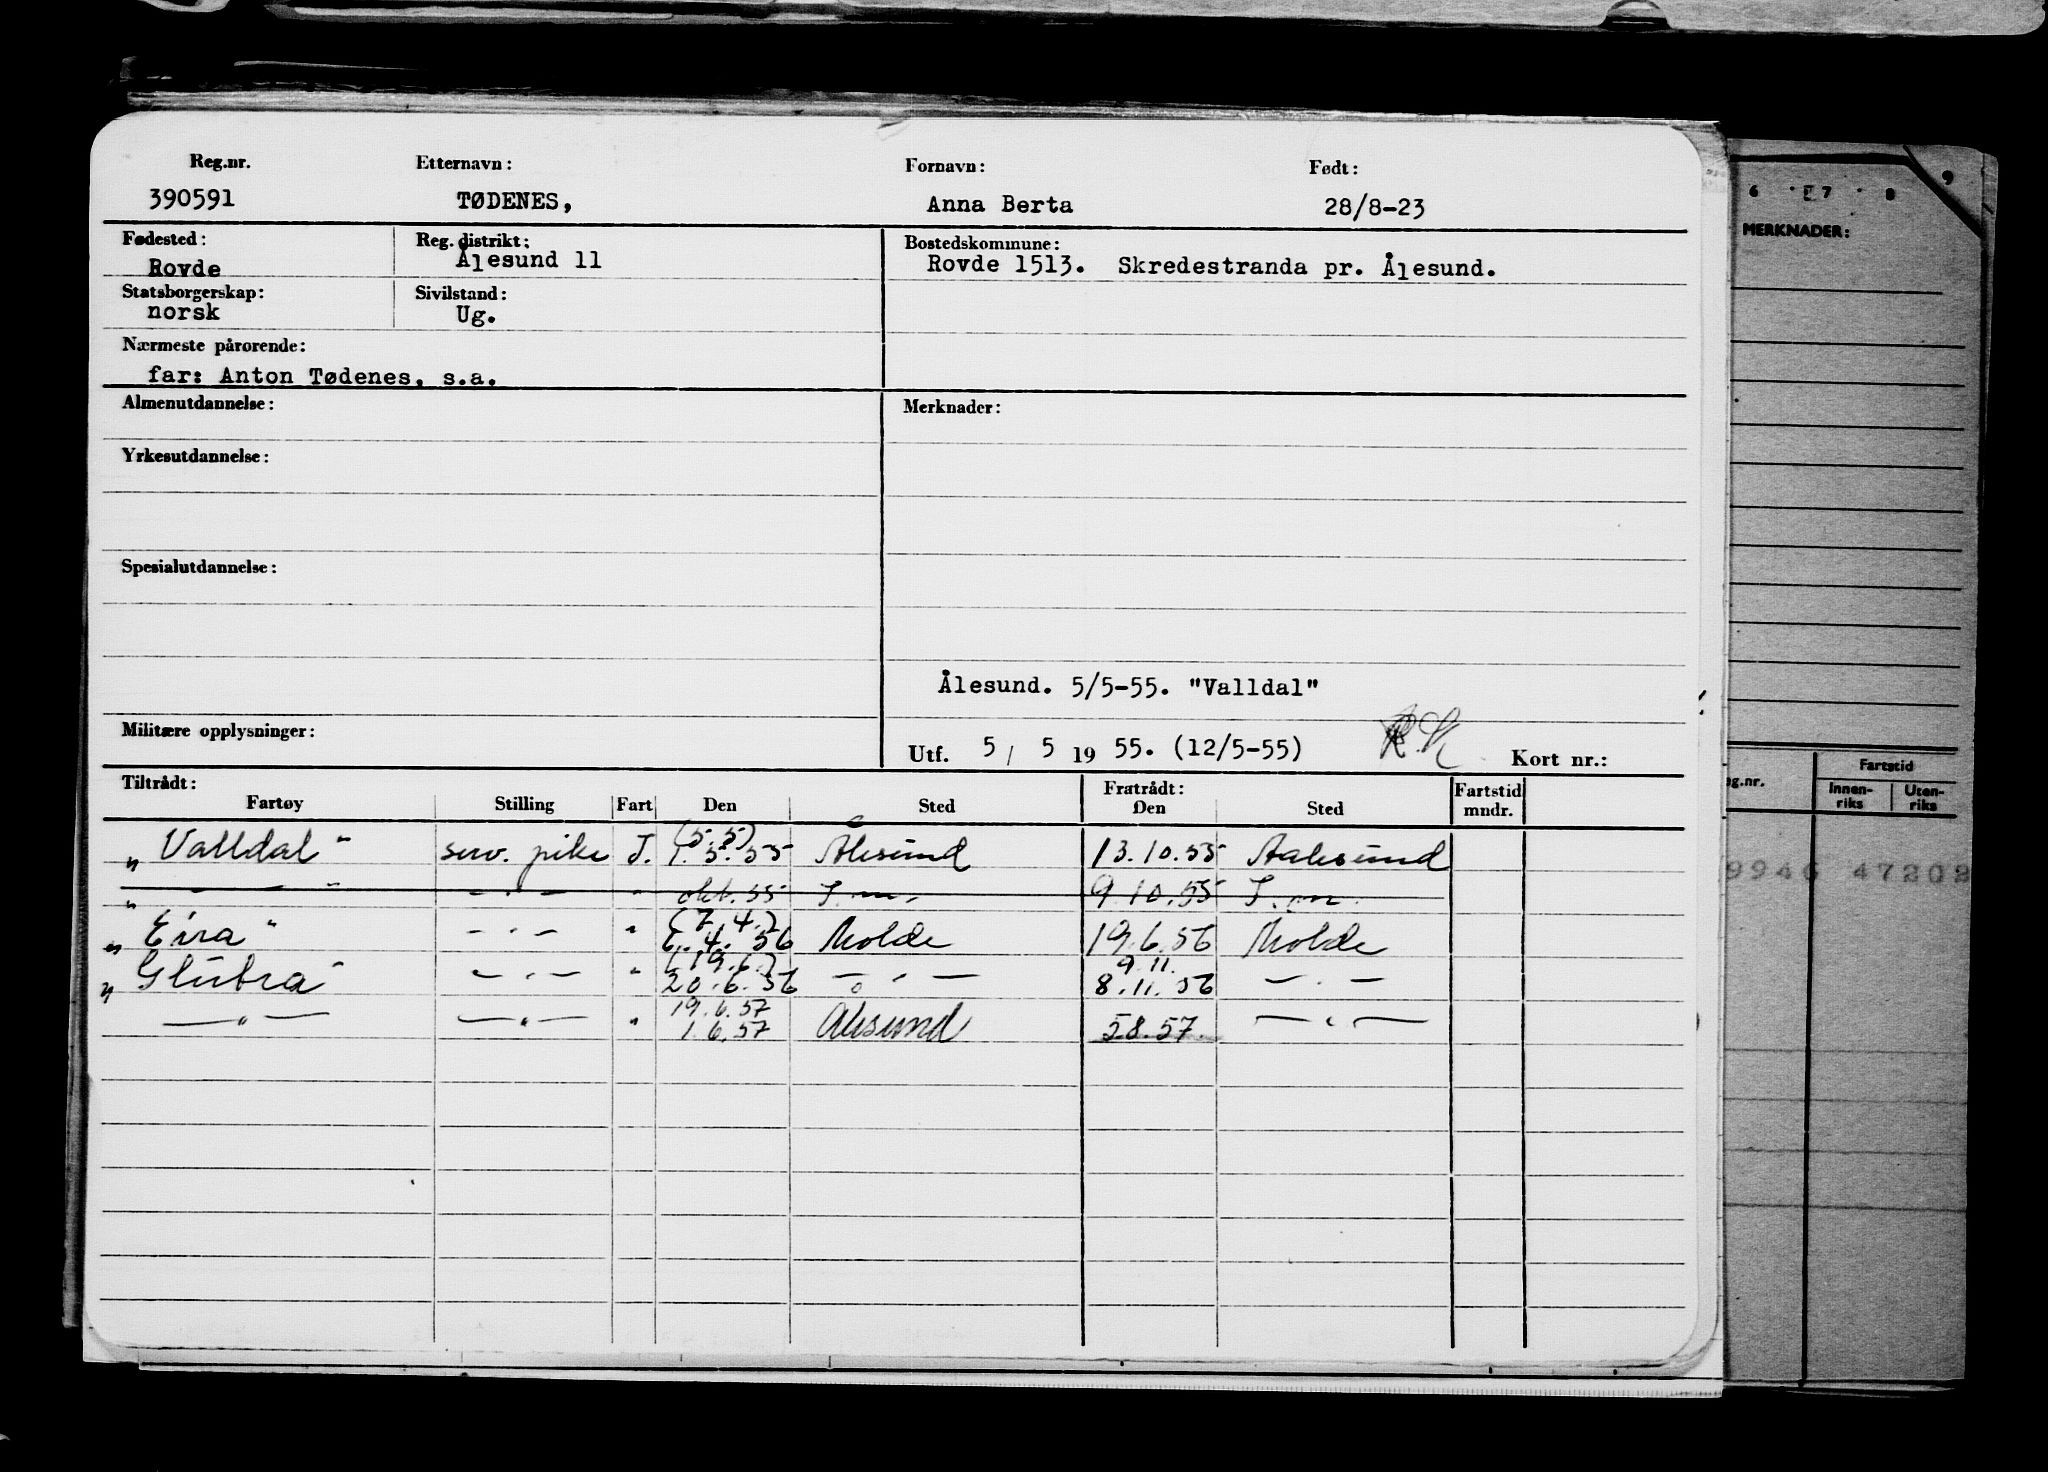 Reg.nr. Etternavn: Fornavn: Født:
390591 TØDENES, Anna Berta 28/8-23
Fødested: Reg. distrikt: Bostedskommune:
Rovde Ålesund 11 Rovde 1513. Skredestranda pr. Ålesund.
Statsborgerskap: Sivilstand:
norsk Ug.
Nærmeste pårørende:
far: Anton Tødenes, s.a.
Almenutdannelse: Merknader:
Yrkesutdannelse:
Spesialutdannelse:
Ålesund. 5/5-55. "Valldal"
Militære opplysninger:
Utf. 5 / 5 19 55. (12/5-55) Kort nr.:
Tiltrådt: Fratrådt:
Fartøy Stilling Fart Den Sted Den Sted Fartstid mndr.
(5.5)
"Valldal" serv. pike I. 1.5.55 Ålesund 13.10.55 Aalesund
" — " — — " — " okt. 55 I.m. 9.10.55 I.m.
(7.4.)
"Eira" — " — " 6.4.56 Molde 19.6.56 Molde
(19.6.) 9.11.
"Glutra" — " — " 20.6.56 — " — 8.11.56 — " —
19.6.57
— " — — " — " 1.6.57 Ålesund 5.8.57 — " —
6 7 8 9
MERKNADER:
g.nr. Fartstid
Innen-riks Uten-riks
9946 47202